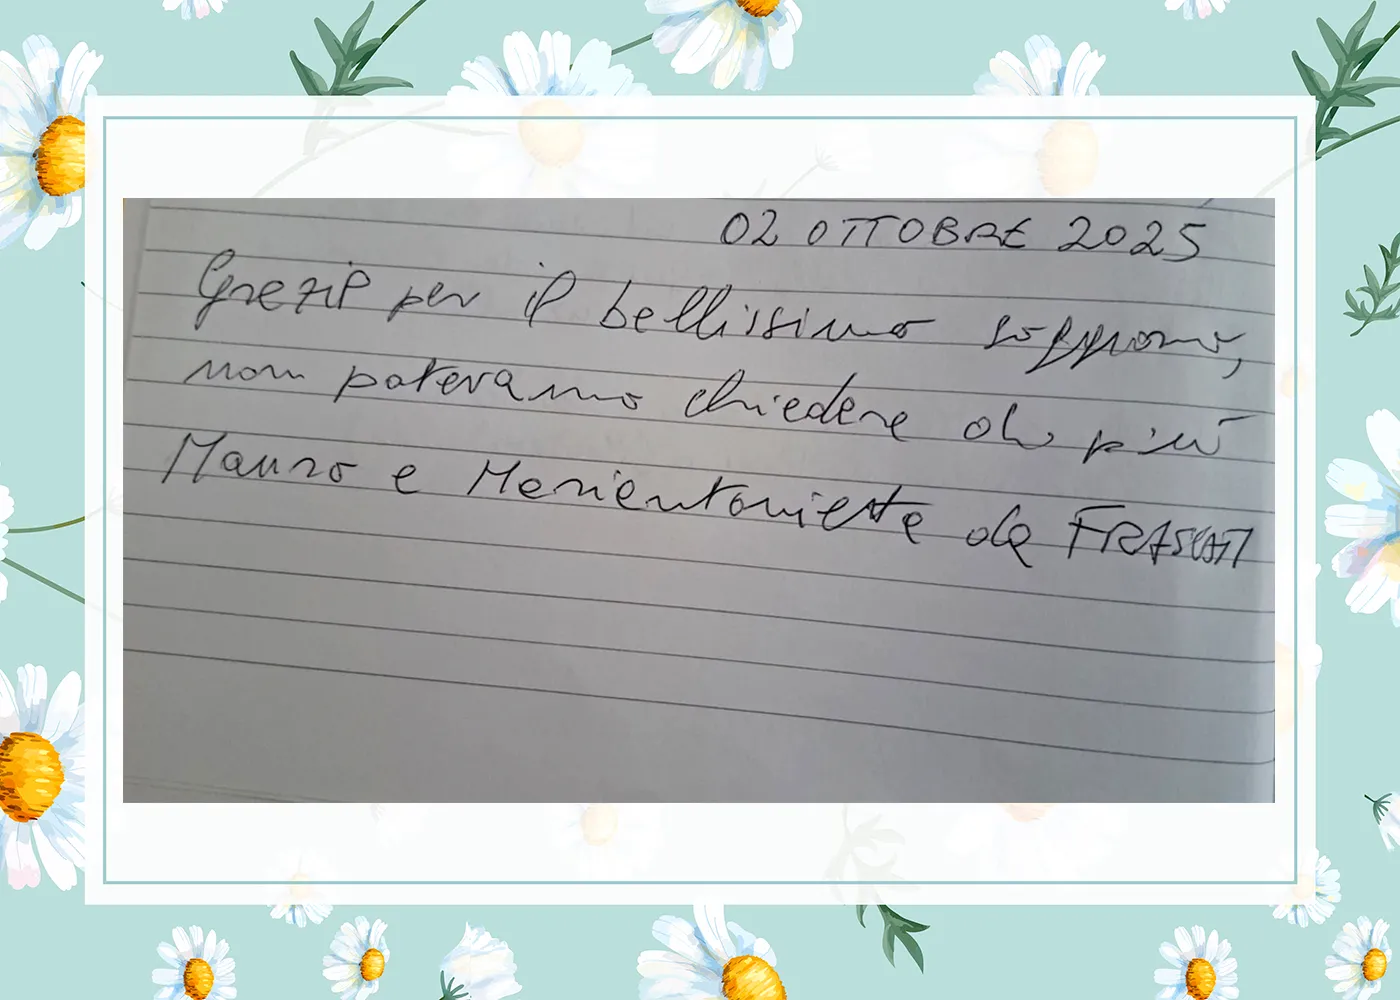 02 OTTOBRE 2025
Grazie per il bellissimo soggiorno,
non potevamo chiedere di più
Mauro e Marientonietta da FRASCATI